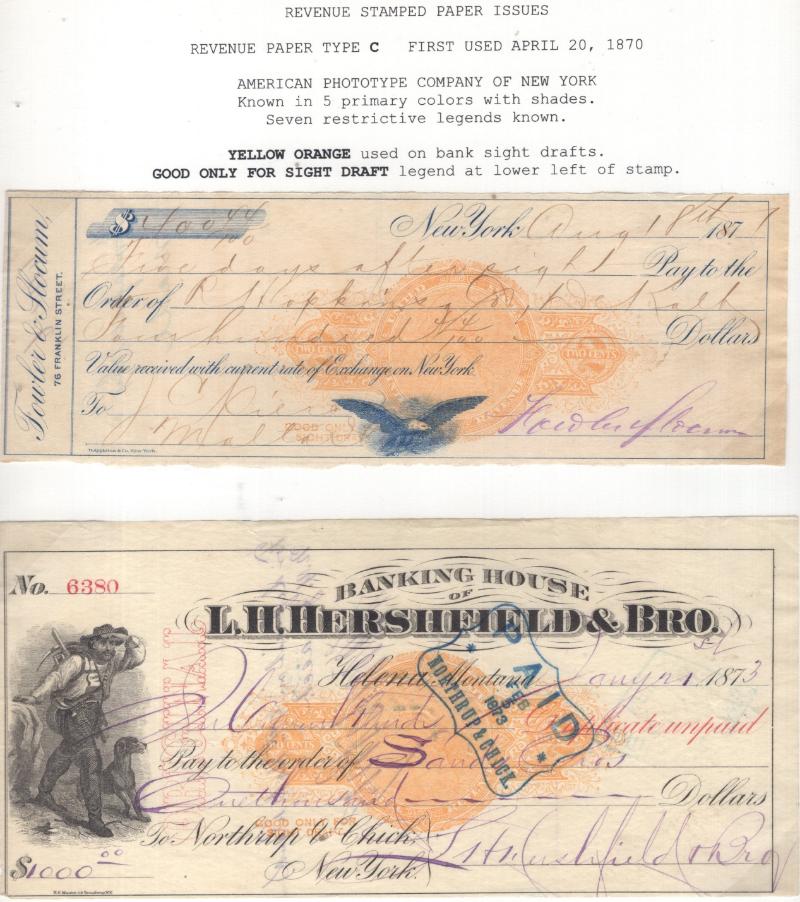 REVENUE STAMPED PAPER ISSUES
REVENUE PAPER TYPE C FIRST USED APRIL 20, 1870
AMERICAN PHOTOTYPE COMPANY OF NEW YORK
Known in 5 primary colors with shades.
Seven restrictive legends known.
YELLOW ORANGE used on bank sight drafts.
GOOD ONLY FOR SIGHT DRAFT legend at lower left of stamp.
Fowler & Slocum,
76 FRANKLIN STREET.
$ 400 44/100
New York Aug 18th 1871
Five days after sight Pay to the
Order of P Hopkins
Four hundred 44/100 Dollars
TWO CENTS
TWO CENTS
REVENUE
Value received with current rate of Exchange on New York
To J C
GOOD ONLY
SIGHT DRAFT
Fowler & Slocum
D. Appleton & Co. New York.
No. 6380
BANKING HOUSE
OF
L.H. HERSHFIELD & BRO.
Helena, Montana Jany 21 1873
PAID
FEB
1873
NORTHRUP & CHICK.
Duplicate unpaid
Pay to the order of Sands Bros
One thousand Dollars
GOOD ONLY FOR
SIGHT DRAFT
To Northrup & Chick,
New York.
L H Hershfield & Bro
$1000 00